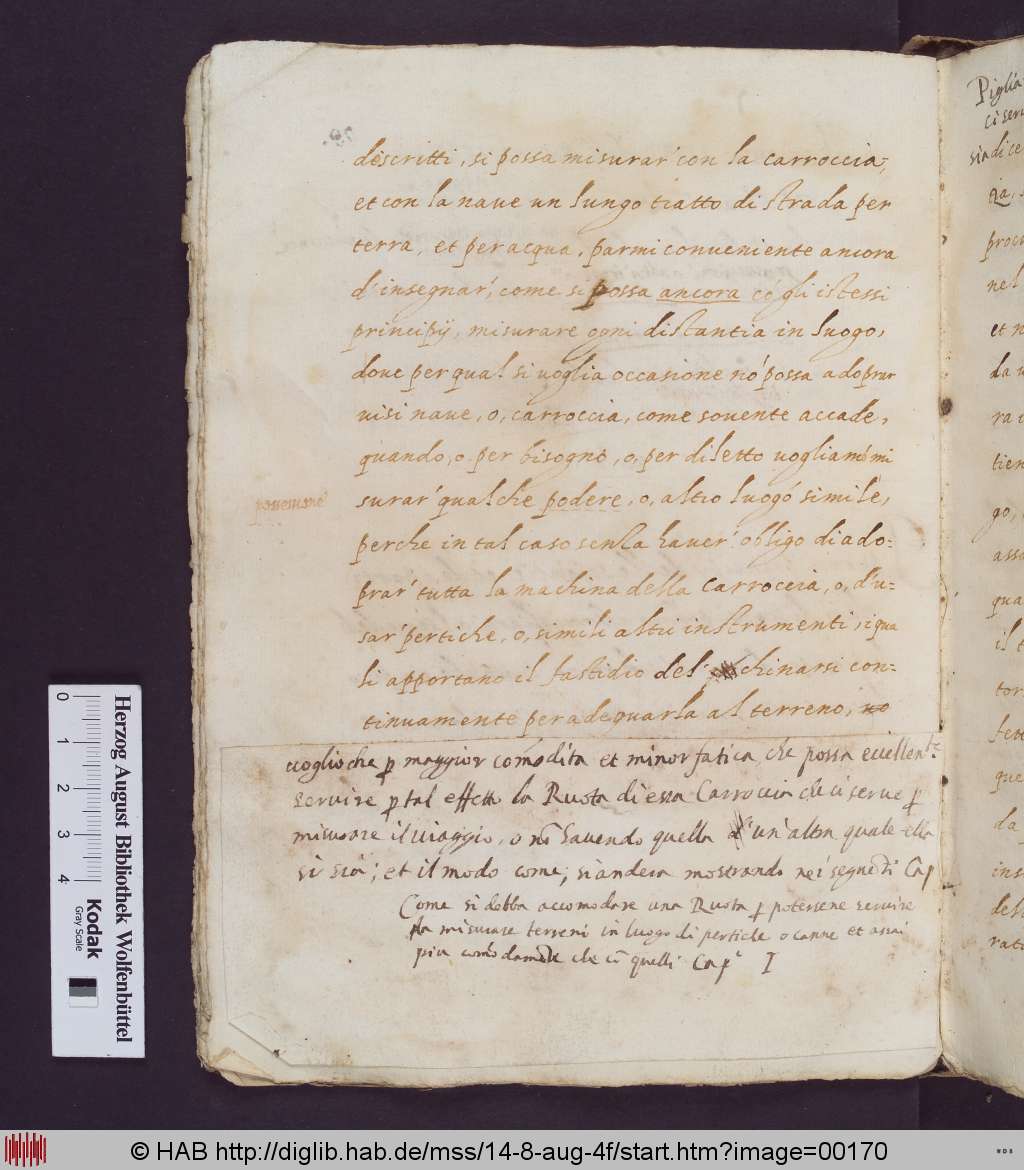 descritti, si possa misurar' con la carroccia,
et con la naue un lungo tratto di strada per
terra, et per acqua, parmi conueniente ancora
d'insegnar', come si possa ancora co' gli istessi
principij, misurare ogni distantia in luogo,
doue per qual si uoglia occasione nō possa adoprar
uisi naue, o, carroccia, come souente accade,
quando, o per bisogno, o, per diletto uogliamo mi
surar' qualche podere, o, altro luogo simile,
perche in tal caso senza hauer' obligo di ado=
prar' tutta la machina della Carroccia, o, d'u=
sar' pertiche, o, simili altri instrumenti, i qua
li apportano il fastidio del' chinarsi con=
tinuamente per adeguarla al terreno,
uoglio che p maggior comōdita et minor fatica, che possa eccellent.e
seruire p tal effetto la Ruota di essa Carroccia che ci serue p
misurare il uiaggio, o nō hauendo quella d'un'altra quale ella
si sia; et il modo come; si andera mostrando nei seguēti Cap
Come si debba accomodare una Ruota p potersene seruire
a misurare terreni in luogo di pertiche o canne et assai
piu comōdamēte che cō quelli Cap.º I
Piglia
ci ser
sia di ce
procu
nel
et n
da u
ra
tien
go,
assa
qua
il t
tor
que
da
ins
del
rat
Herzog August Bibliothek Wolfenbüttel
0 1 2 3 4
Kodak
Gray Scale
© HAB http://diglib.hab.de/mss/14-8-aug-4f/start.htm?image=00170